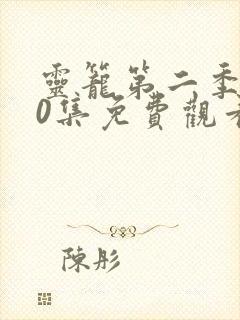 靈籠第二季
0集免費觀
陳彤